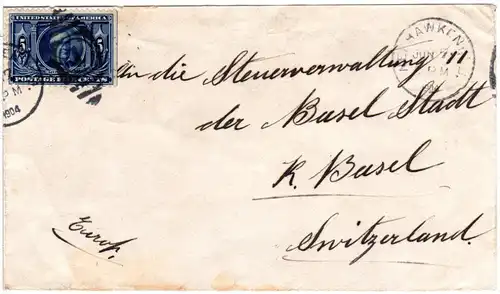 UNITED STATES OF AMERICA
5 5
POSTAGE FIVE CENTS
1904
HAWKEN
JUN
PM
An die Steuerverwaltung
der Basel Stadt
K. Basel
Switzerland.
Europ.